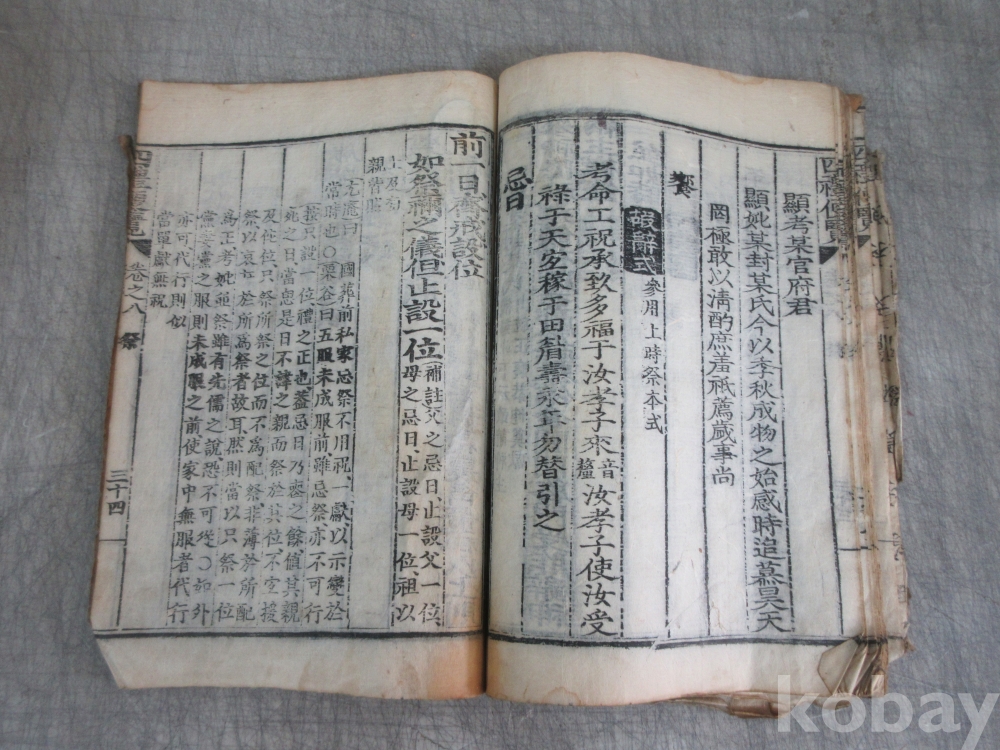 顯考某官府君
顯妣某封某氏今以季秋成物之始感時追慕昊天
罔極敢以清酌庶羞祗薦歲事尚
饗
嘏辭式 參用上時祭本式
考命工祝承致多福于汝孝子來 音釐 汝孝子使汝受
祿于天宜稼于田眉壽永年勿替引之
忌日
前一日齋戒設位
如祭禰之儀但止設一位 補註父之忌日止設父一位
母之忌日止設母一位祖以
上及旁
親皆
尤庵曰 國葬前私家忌祭不用祝一獻以示變於
常時也○栗谷曰五服未成服前雖忌祭亦不可行
按只設一位禮之正也蓋忌日乃喪之餘値其親
死之日當思是日不諱之親而祭於其位不宜援
及他位只祭所祭之位而不爲配祭非薄於所配
祭以哀在於所爲祭者故耳然則當以只祭一位
爲正考妣並祭雖有先儒之說恐不可從○如外
黨妻黨之服則未成服之前使家中無服者代行
亦可代行則似
當單獻無祝
卷之八 祭
三十四
kobay